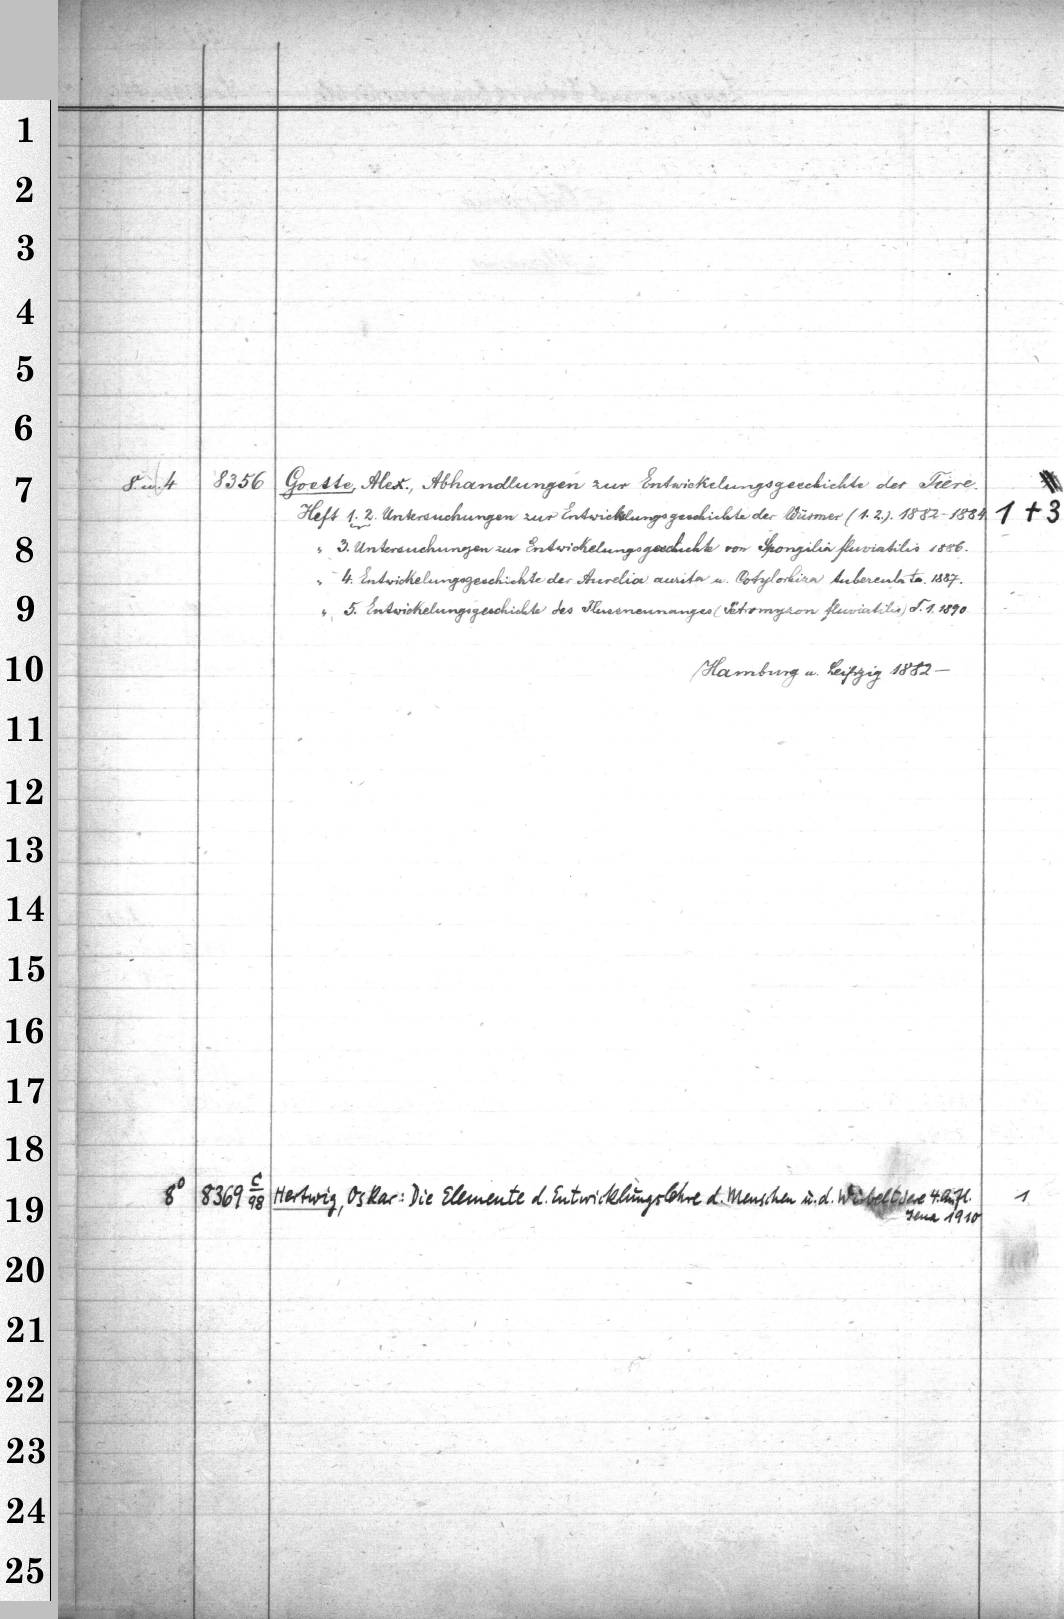 1
2
3
4
5
6
7
8. u. 4 8356 Goette, Alex., Abhandlungen zur Entwickelungsgeschichte der Tiere.
Heft 1. 2. Untersuchungen zur Entwicklungsgeschichte der Würmer (1. 2.). 1882-1884. 1 + 3
8
" 3. Untersuchungen zur Entwickelungsgeschichte von Spongilia fluviatilis 1886.
" 4. Entwickelungsgeschichte der Aurelia aurita u. Cotylorhiza tuberculata. 1887.
9
" 5. Entwickelungsgeschichte des Flussneunauges (Petromyzon fluviatilis) T. 1. 1890
10
Hamburg u. Leipzig 1882—
11
12
13
14
15
16
17
18
19
8° 8369 C/98 Hertwig, Oskar: Die Elemente d. Entwicklungslehre d. Menschen u. d. Wirbeltiere 4. Aufl. 1
Jena 1910
20
21
22
23
24
25